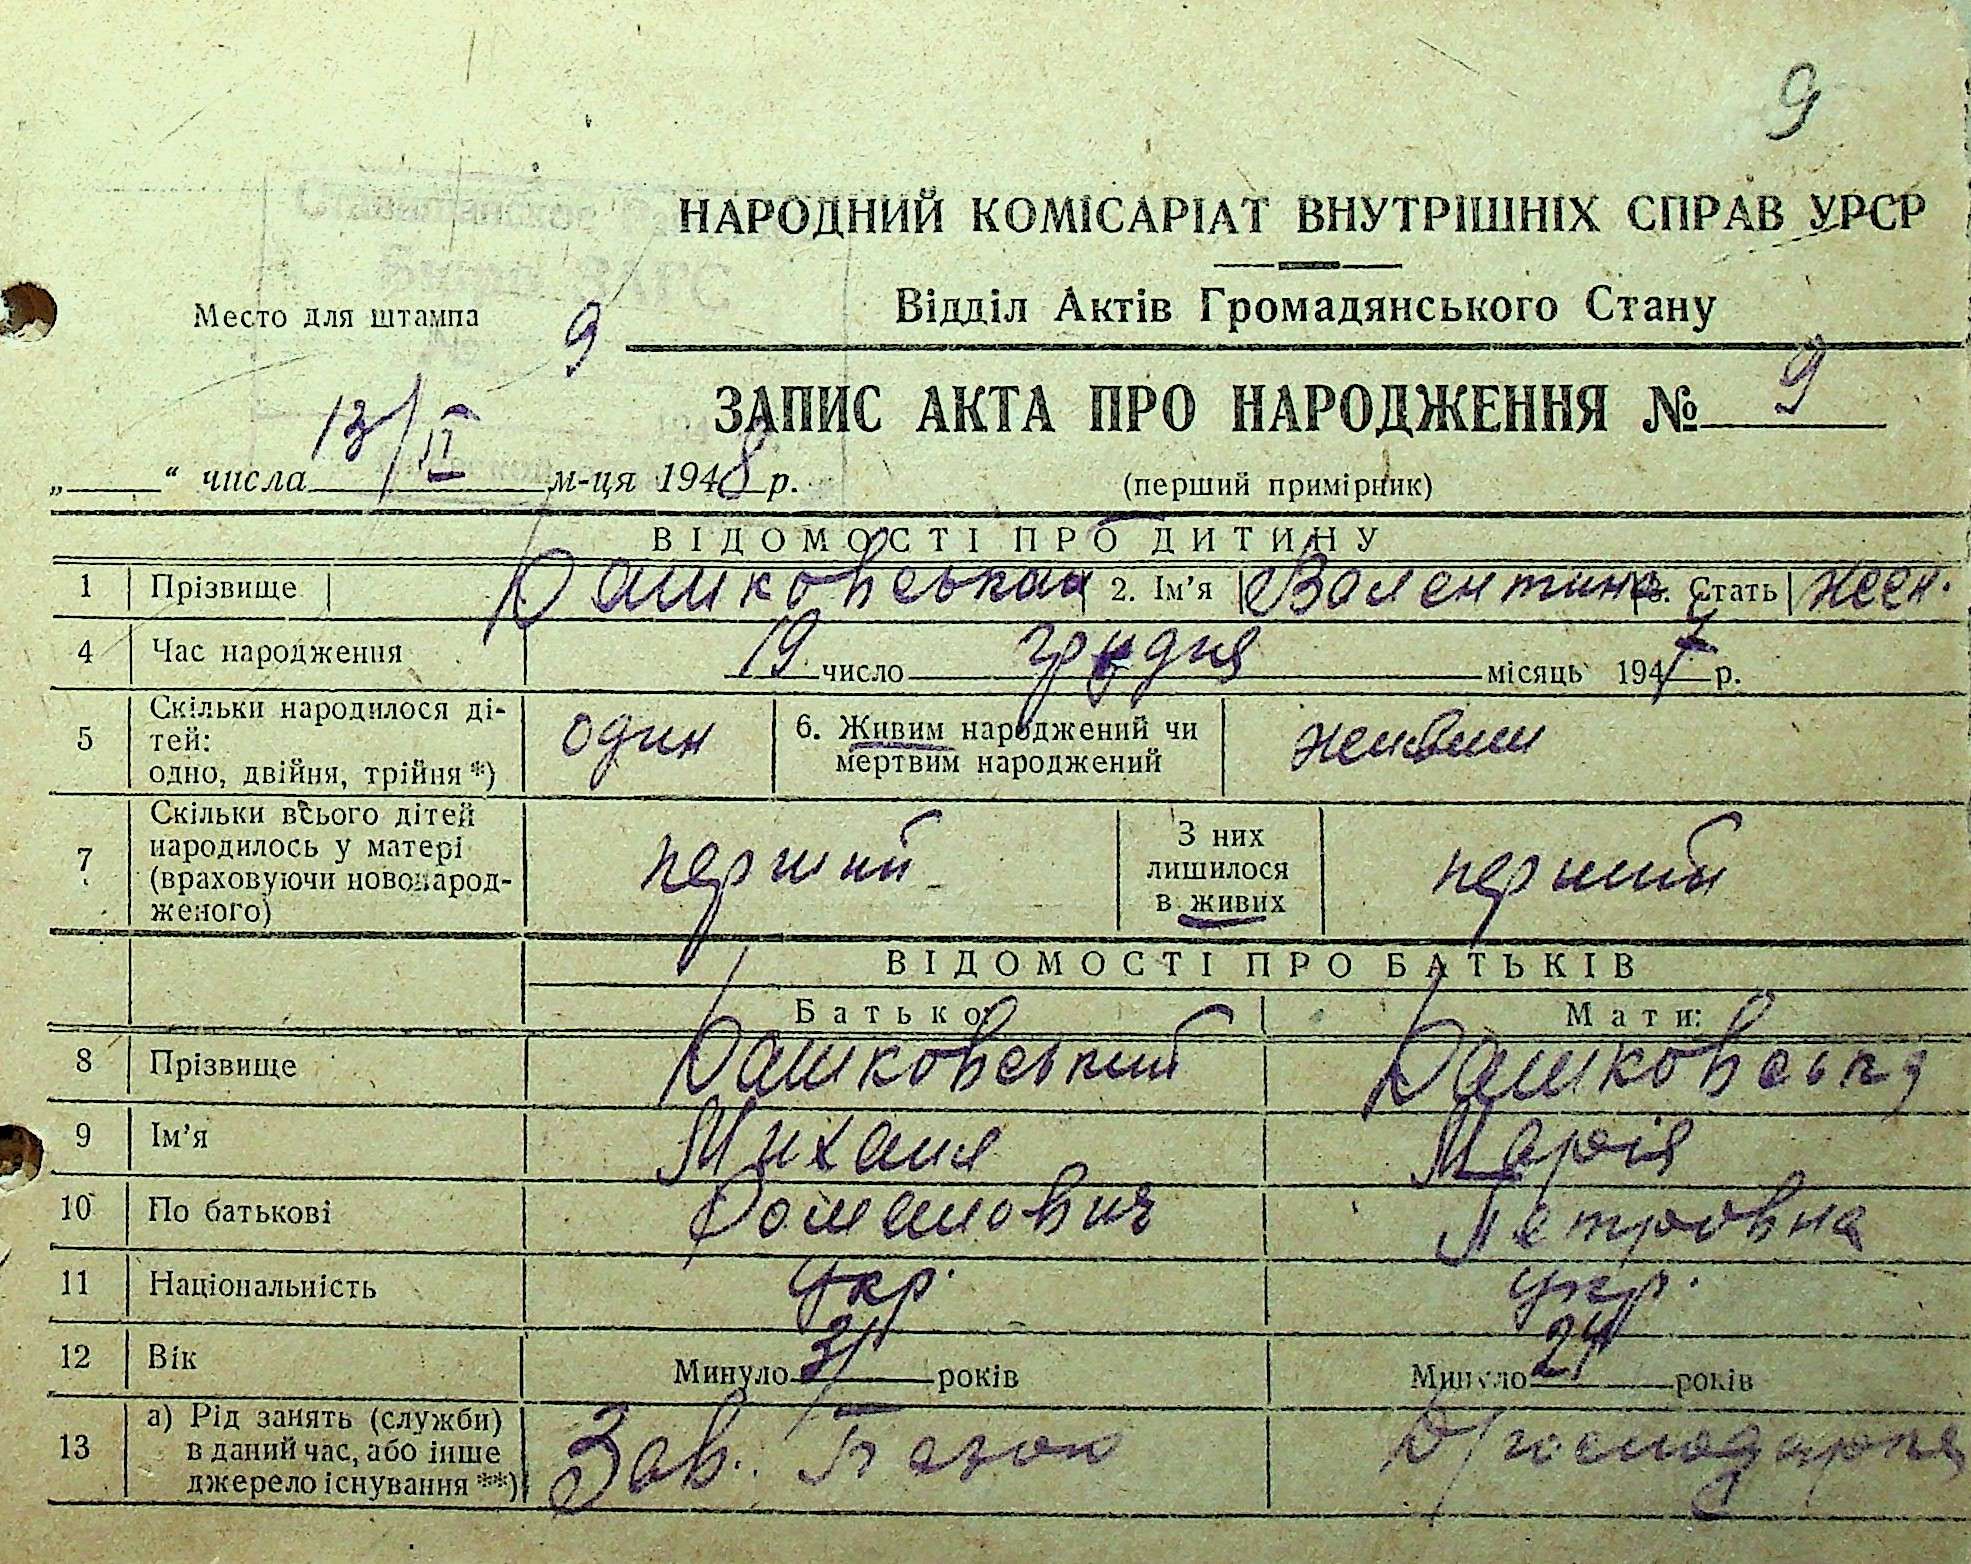 9
НАРОДНИЙ КОМІСАРІАТ ВНУТРІШНІХ СПРАВ УРСР
Відділ Актів Громадянського Стану
Место для штампа 9
Бюро ЗАГС
ЗАПИС АКТА ПРО НАРОДЖЕННЯ № 9
„ “ числа 13/II м-ця 1948 р.
(перший примірник)
ВІДОМОСТІ ПРО ДИТИНУ
1 Прізвище Дашковськая 2. Ім’я Валентина 3. Стать жен.
4 Час народження 19 число грудня місяць 1947 р.
5 Скільки народилося ді-
тей:
одно, двійня, трійня *) один 6. Живим народжений чи
мертвим народжений живим
7 Скільки всього дітей
народилось у матері
(враховуючи новонарод-
женого) перший З них
лишилося
в живих перший
ВІДОМОСТІ ПРО БАТЬКІВ
Батько: Мати:
8 Прізвище Дашковський Дашковська
9 Ім’я Михаил Марія
10 По батькові Романович Петровна
11 Національність укр. укр.
12 Вік Минуло 31 років Минуло 24 років
13 а) Рід занять (служби)
в даний час, або інше
джерело існування **) Зав. базою Д/господарка